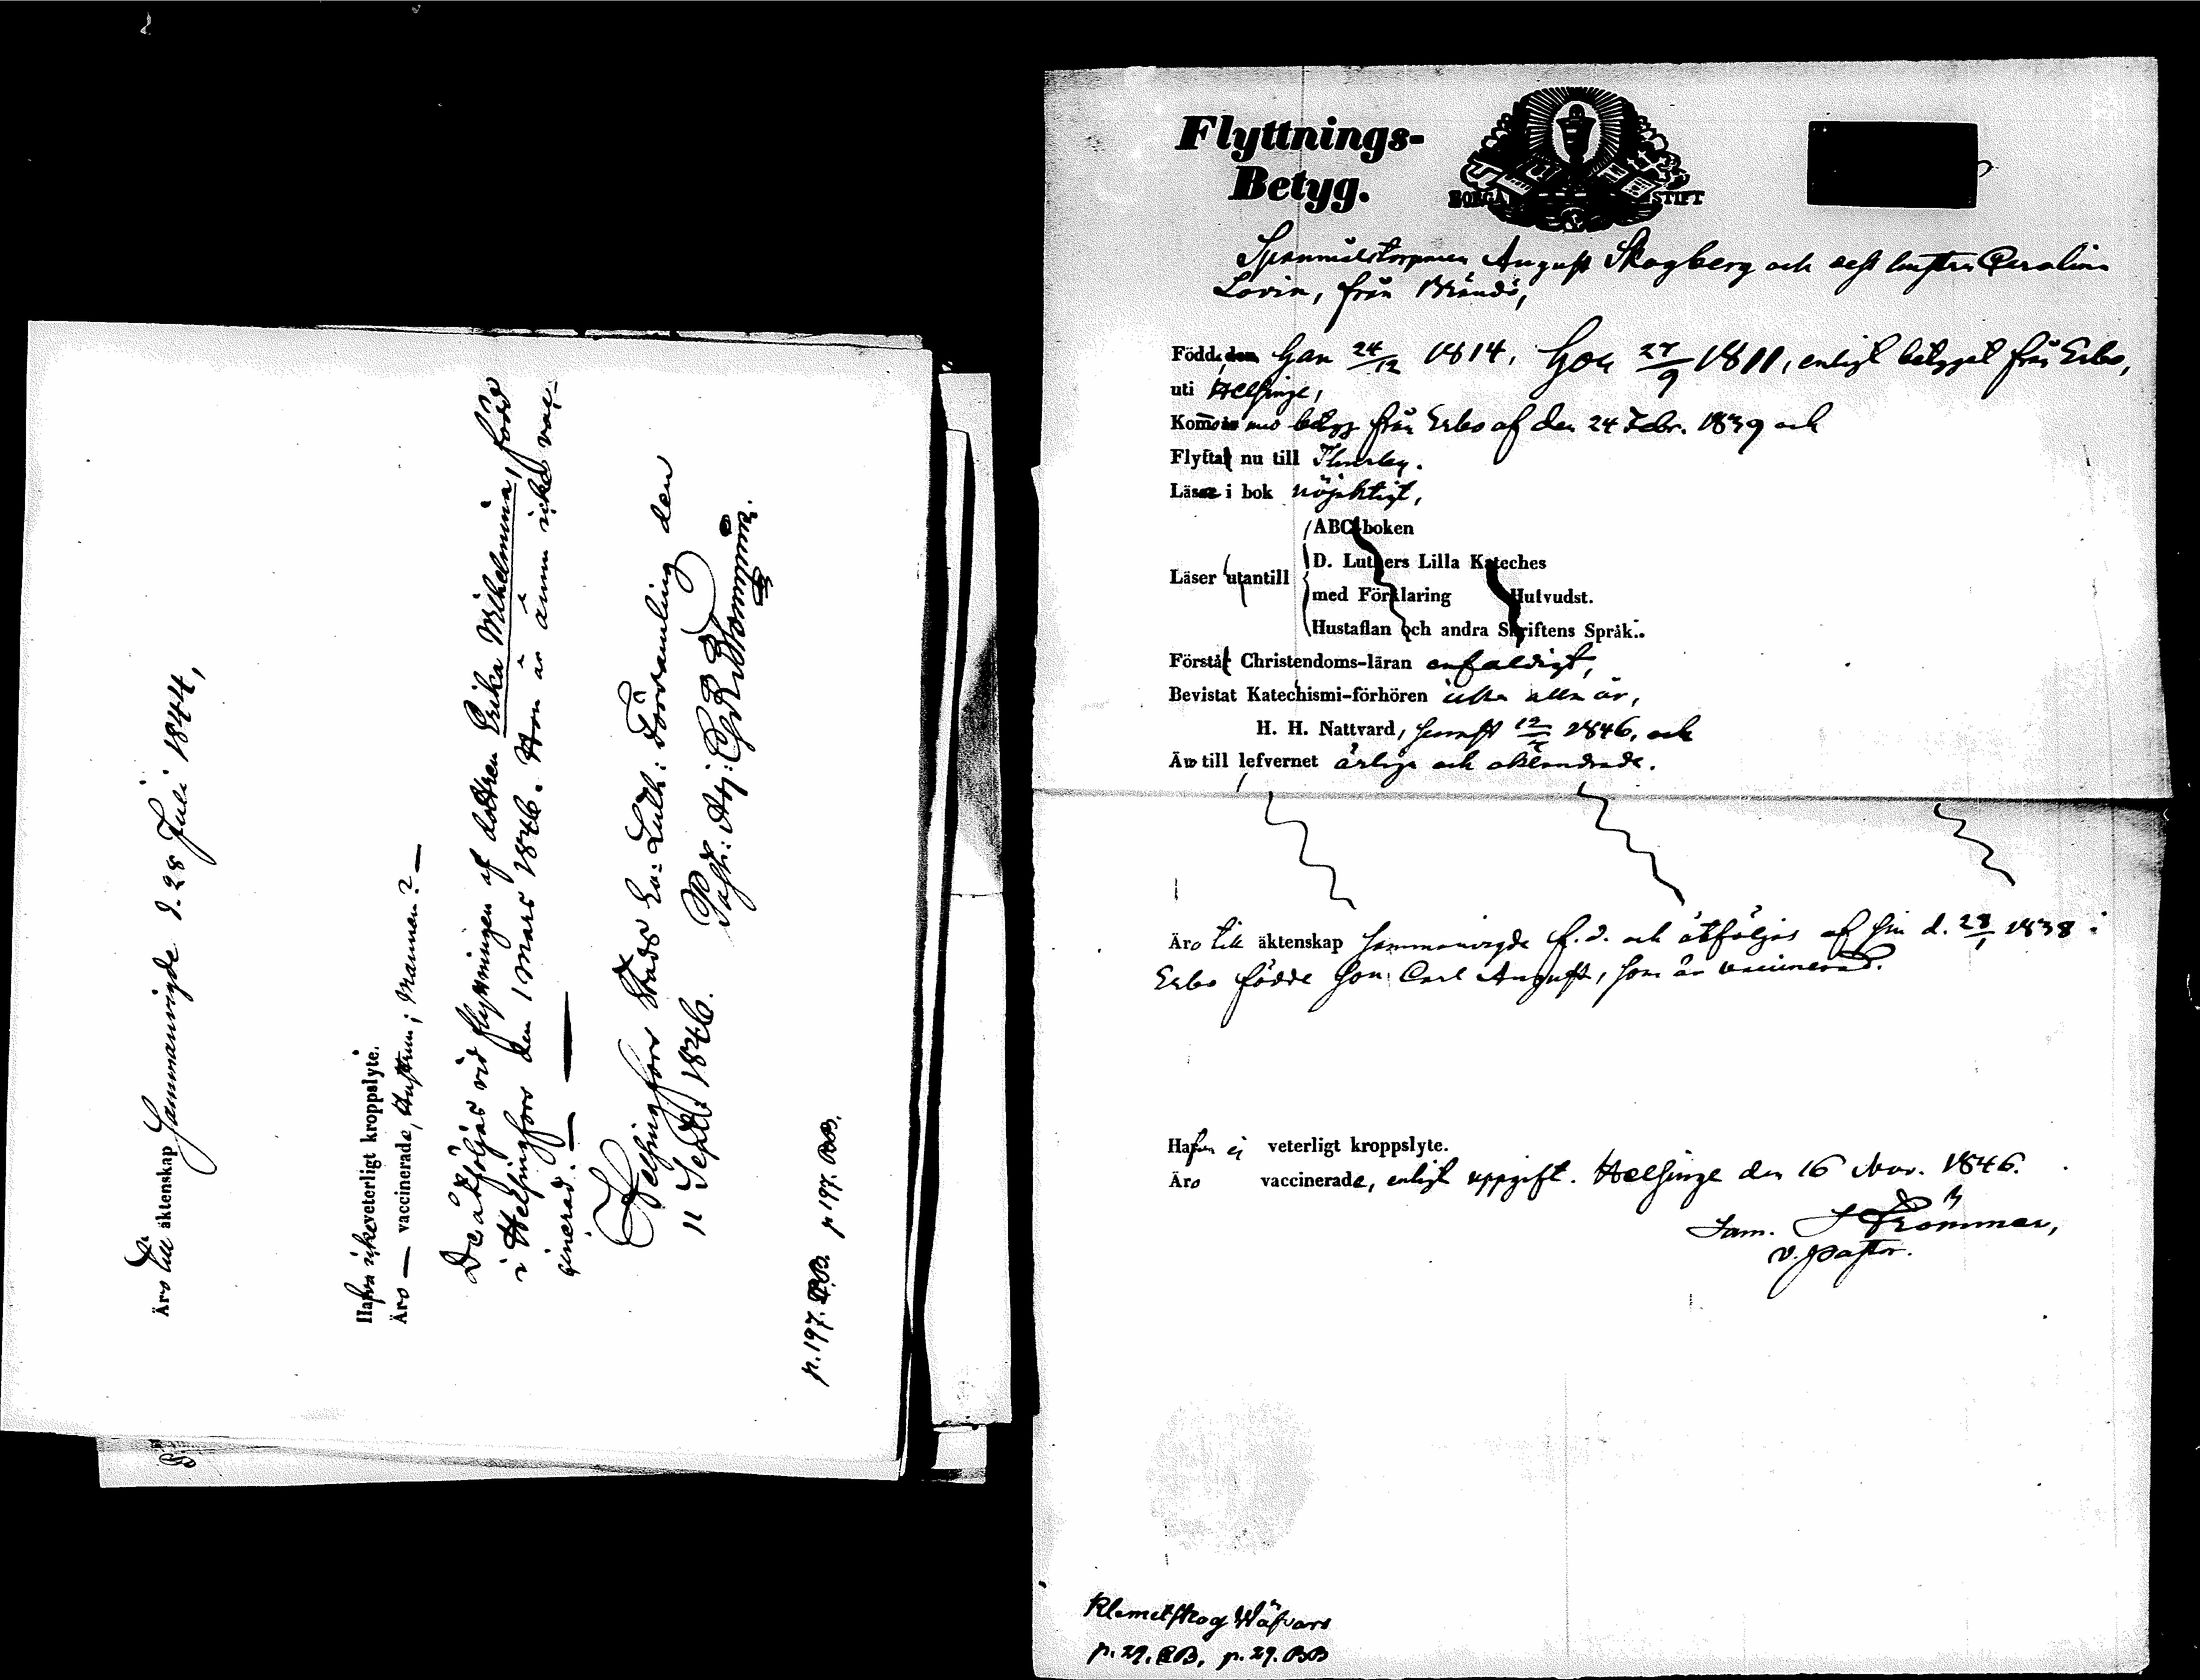 Äro till äktenskap Sammanvigde d. 28 Juli 1844,
Hafva icke veterligt kroppslyte.
Äro — vaccinerade, Hustrun; Mannen? —
De åtföljas vid flyttningen af dottren Erika Wilhelmina, född
i Helsingfors den 1 Mars 1846. Hon är ännu icke vac-
cinerad. —
Helsingfors Stads Ev: Luth: Församling den
11 Sept: 1846.
Past: Adj:
p. 197. p 197. BB.
Flyttnings-
Betyg.
BORGÅ STIFT
August Skogberg och dess hustru Carolina
Lovisa, från Brändö,
Född, den han 24/12 1814, hon 27/9 1811, enligt betyget från Esbo,
uti Helsinge,
Kommo med betyg från Esbo af den 24 Febr. 1839 och
Flytta nu till Thusby.
Läsa i bok nöjaktigt,
ABC-boken
D. Luthers Lilla Kateches
Läser utantill
med Förklaring Hufvudst.
Hustaflan och andra Skriftens Språk.
Förstå Christendoms-läran enfaldigt,
Bevistat Katechismi-förhören icke alla år,
H. H. Nattvard, senast 1846, och
Äro till lefvernet ärliga och oklandrade.
Äro till äktenskap sammanvigde f. d. och åtföljas af sin d. 28/1 1838 i
Esbo födde son Carl August, som är vaccinerad.
Hafva ej veterligt kroppslyte.
Äro vaccinerade, enligt uppgift. Helsinge den 16 Nov. 1846.
Sam. Strömmer,
v. pastor.
Klemetskog Wäfvars
p. 29. CB, p. 29. BB